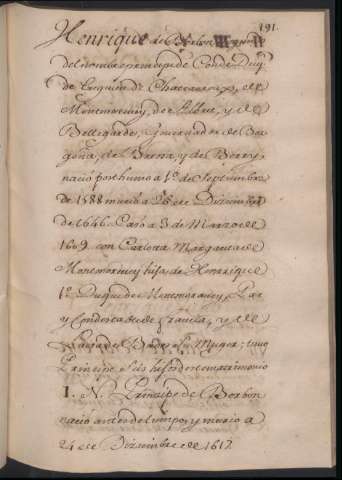 191
Henrique de Borbon II
del nombre principe de Conde Duq
de Enguien de Chateauroux, de
Montmorency, de Albret, y de
Bellegarde, Governador de Bor
goña, de Berri, y de
nació posthumo a 1º de Septiembre
de 1588 murió a 26 de Diziembre
de 1646. Casó a 3 de Marzo de
1609 con Carlota Margarita de
Montmorency hija de Henrique
1º Duque de Montmorancy, Par
y Condestable de Francia, y de
su Muger; tuvo
Principe seis hijos de este matrimonio
I. N. Principe de Borbon
nació antes del tiempo, y murió a
24 de Diziembre de 1617.